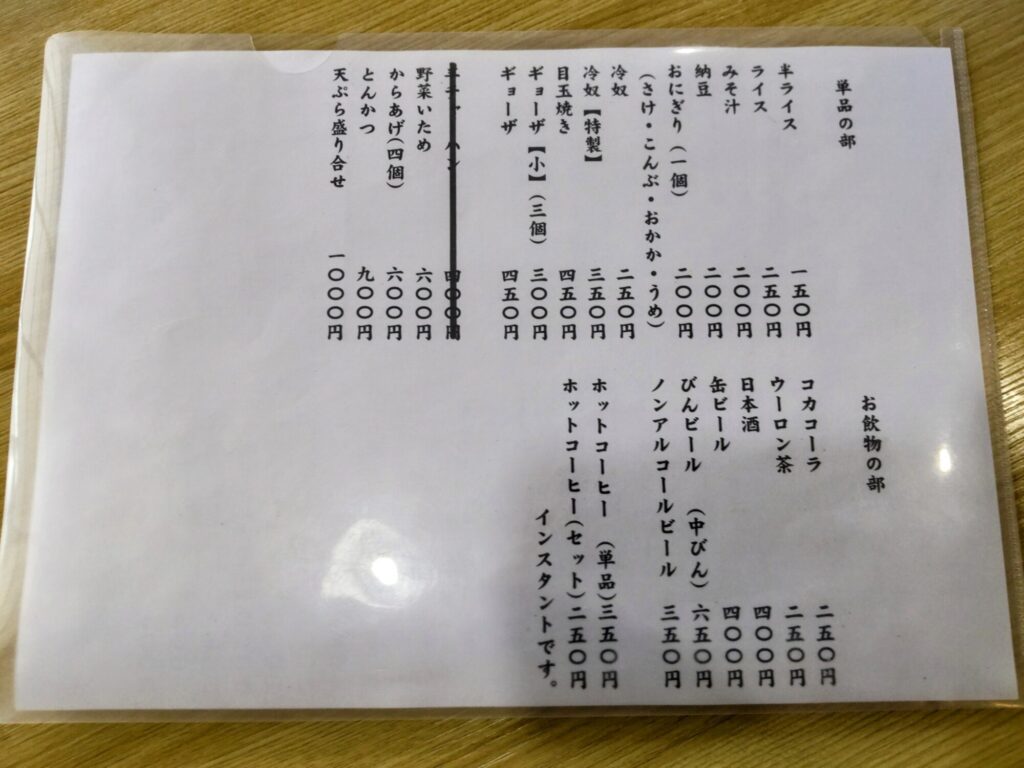 単品の部
半ライス 一五〇円
ライス 二五〇円
みそ汁 二〇〇円
納豆 二〇〇円
おにぎり（一個） 二〇〇円
（さけ・こんぶ・おかか・うめ）
冷奴 二五〇円
冷奴【特製】 三五〇円
目玉焼き 四五〇円
ギョーザ【小】（三個） 三〇〇円
ギョーザ 四五〇円
四〇〇円
野菜いため 六〇〇円
からあげ（四個） 六〇〇円
とんかつ 九〇〇円
天ぷら盛り合せ 一〇〇〇円
お飲物の部
コカコーラ 二五〇円
ウーロン茶 二五〇円
日本酒 四〇〇円
缶ビール 四〇〇円
びんビール （中びん） 六五〇円
ノンアルコールビール 三五〇円
ホットコーヒー （単品）三五〇円
ホットコーヒー（セット）二五〇円
インスタントです。